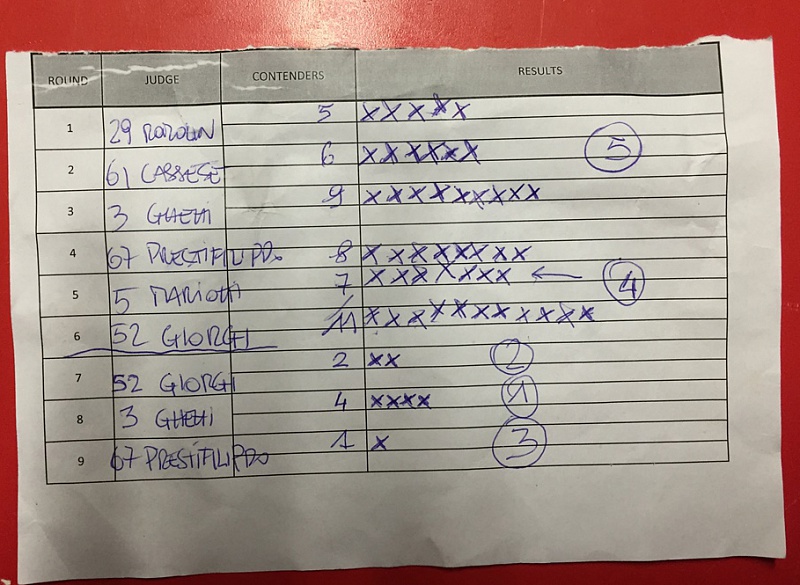 ROUND JUDGE CONTENDERS RESULTS
1 29 5 XXXXX
2 61 CASSESE 6 XXXXXX 5
3 3 9 XXXXXXXXX
4 67 PRESTIFILIPPO 8 XXXXXXXX
5 5 MARIOTTI 7 XXXXXXX ← 4
6 52 GIORGI 11 XXXXXXXXXXX
7 52 GIORGI 2 XX 2
8 3 4 XXXX 1
9 67 PRESTIFILIPPO 1 X 3